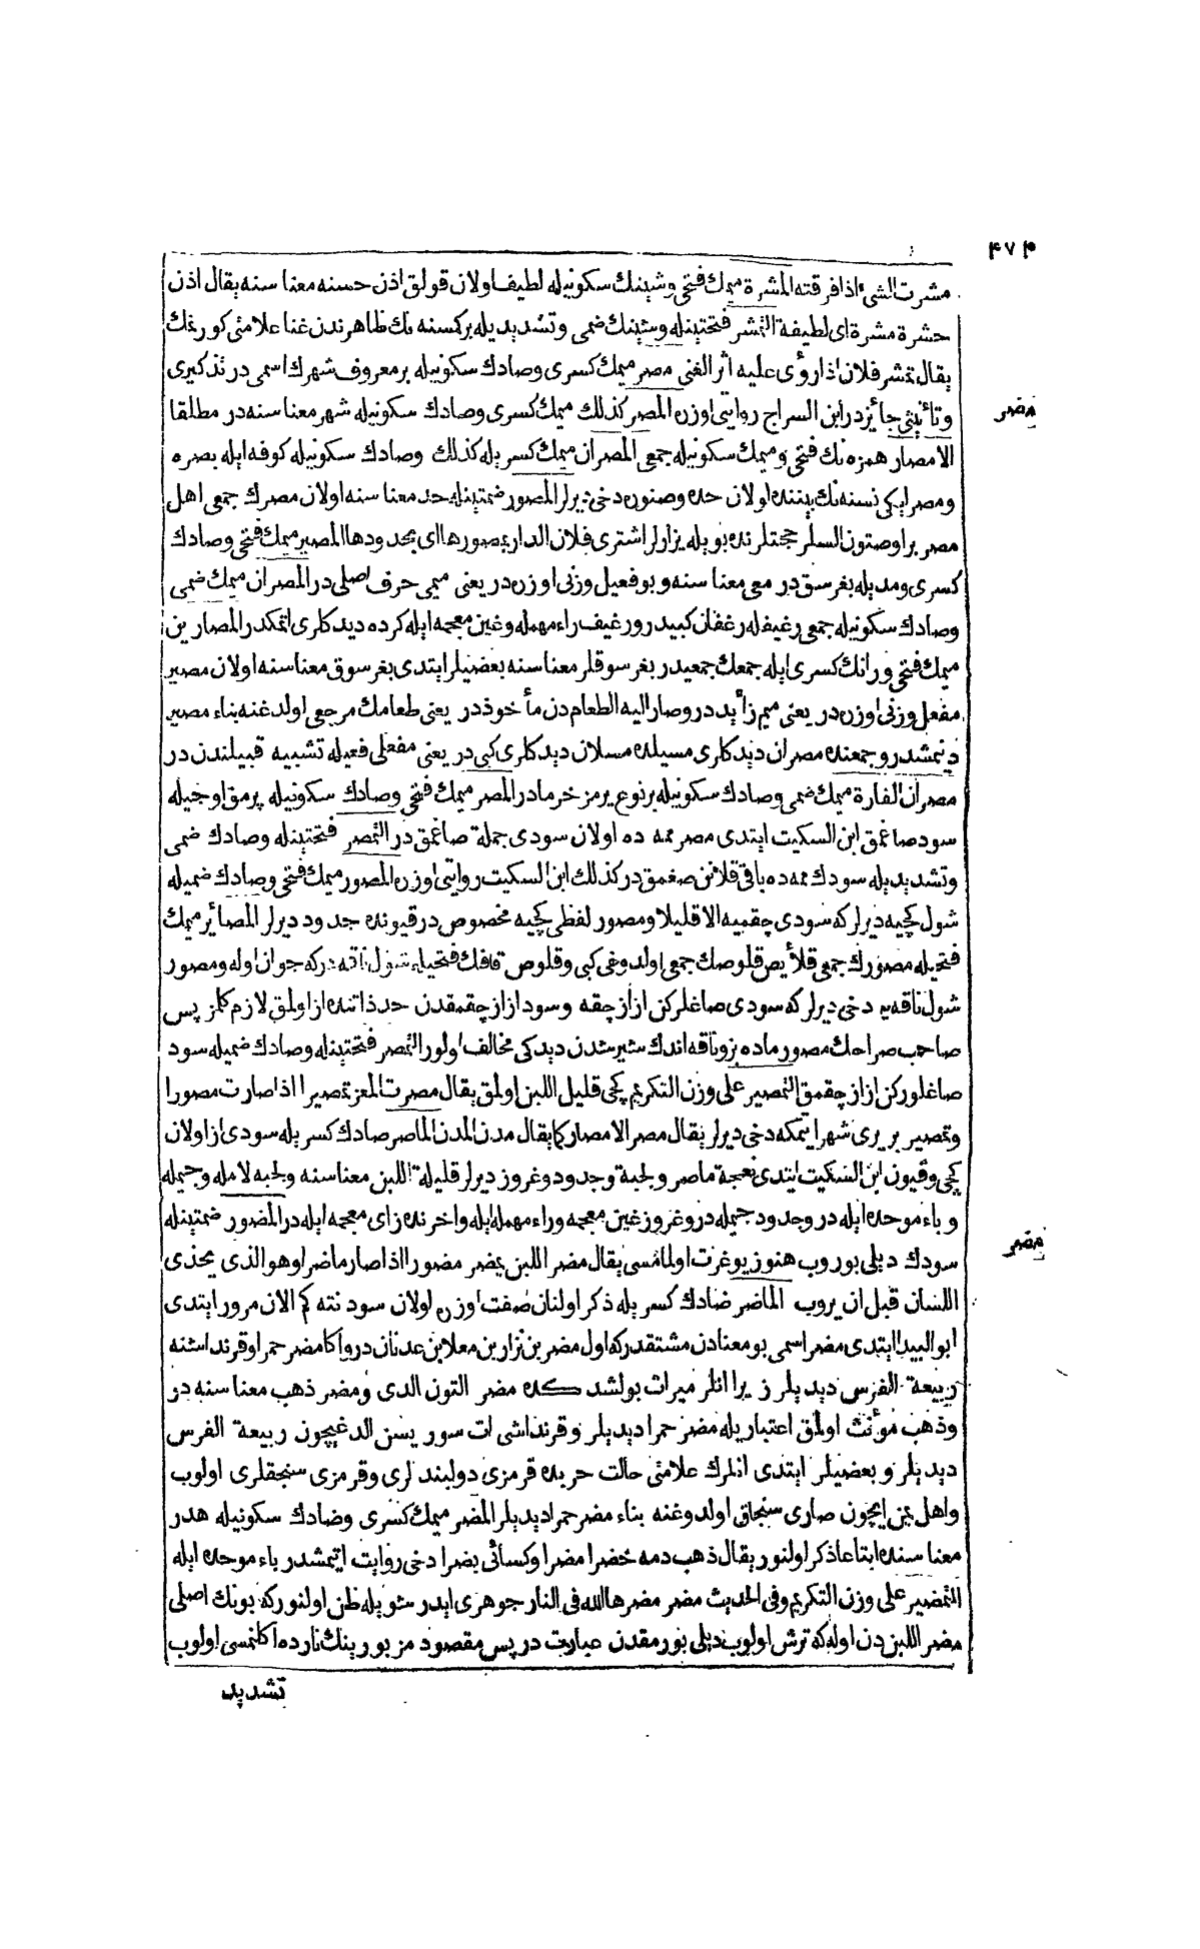 ۴۷۴
مشرت الشئ اذا فرقته المشرة ميمك فتحى وشينك سكونيله لطيف اولان قولق اذن حسنه معنا سنه يقال اذن
حشرة مشرة اى لطيفة التمشر فتحتينله وشينك ضمى وتشديديله بر كسنه نك ظاهرندن غنا علامتى كورنمك
يقال تمشر فلان اذا رؤى عليه اثر الغنى مصر ميمك كسرى وصادك سكونيله بر معروف شهرك اسمى در تذكيرى
مصر
وتأنيثى جائزدر ابن السراج روايتى اوزره المصر كذلك ميمك كسرى وصادك سكونيله شهر معنا سنه در مطلقا
الامصار همزه نك فتحى وميمك سكونيله جمعى المصران ميمك كسريله كذلك وصادك سكونيله كوفه ايله بصره
ومصر ايكى نسنه نك بيننده اولان حده وصنوره دخى ديرلر المصور ضمتينله حد معنا سنه اولان مصرك جمعى اهل
مصر براوصتون السلر حجتلرنده بويله يزارلر اشترى فلان الدار بمصورها اى بحدودها المصير ميمك فتحى وصادك
كسرى ومديله بغرسق در معى معنا سنه وبو فعيل وزنى اوزره در يعنى ميمى حرف اصلى در المصران ميمك ضمى
وصادك سكونيله جمعى رغيفله رغفان كبيدر ورغيف راء مهمله وغين معجمه ايله كرده ديدكلرى اتمكدر المصارين
ميمك فتحى ورانك كسرى ايله جمعك جمعيدر بغرسوقلر معنا سنه بعضيلر ايتدى بغرسوق معنا سنه اولان مصير
مفعل وزنى اوزره در يعنى ميم زائيد در وصار اليه الطعام دن مأخوذ در يعنى طعامك مرجعى اولدغنه بناء مصير
دينمشدر وجمعنده مصران ديدكلرى مسيلده مسلان ديدكلرى كبى در يعنى مفعلى فعيله تشبيه قبيلندن در
مصران الفارة ميمك ضمى وصادك سكونيله بر نوع يرمز خرمادر المصر ميمك فتحى وصادك سكونيله پرمق اوجيله
سود صاغمق ابن السكيت ايتدى مصر ممه ده اولان سودى جملة صاغمق در التمصر فتحتينله وصادك ضمى
وتشديديله سودك ممه ده باقى قلانن صغمق در كذلك ابن السكيت روايتى اوزره المصور ميمك فتحى وصادك ضميله
شول كچيه ديرلر كه سودى چقميه الا قليلا ومصور لفظى كچيه مخصوص در قيونده جدود ديرلر المصائر ميمك
فتحيله مصورك جمعى قلائص قلوصك جمعى اولدوغى كبى وقلوص قافك فتحيله شول ناقه در كه جوان اوله ومصور
شول ناقه يه دخى ديرلر كه سودى صاغلركن از از چقه وسود از از چقمقدن حد ذاتنده از اولمق لازم كلمز پس
صاحب صراحك مصور ماده بز وناقه اندك شير شدن ديدكى مخالف اولور التمصر فتحتينله وصادك ضميله سود
صاغلوركن از از چقمق التمصير على وزن التكريم كچى قليل اللبن اولمق يقال مصرت المعز تمصيرا اذا صارت مصورا
وتمصير بر يرى شهر ايتمكه دخى ديرلر يقال مصر الامصار كما يقال مدن المدن الماصر صادك كسريله سودى از اولان
كچى وقيون ابن السكيت ايتدى نعجة ماصر ولجبة وجدود وغروز ديرلر قليلة اللبن معنا سنه ولجبه لامله وجيمله
وباء موحده ايله در وجدود جيمله در وغروز غين معجمه وراء مهمله ايله واخرنده زاى معجمه ايله در المضور ضمتينله
مضر
سودك ديلى بوروب هنوز يوغرت اولمامسى يقال مضر اللبن يمضر مضورا اذا صار ماضرا وهو الذى يحذى
اللسان قبل ان يروب الماضر ضادك كسريله ذكر اولنان صفت اوزره اولان سود نته كم الان مرور ايتدى
ابو البيد ايتدى مضر اسمى بو معنادن مشتقدر كه اول مضر بن نزار بن معد ابن عدنان در واكا مضر حمرا وقرنداشنه
ربيعة الفرس ديديلر زيرا انلر ميراث بولشدكده مضر التون الدى ومضر ذهب معنا سنه در
وذهب مؤنث اولمق اعتباريله مضر حمرا ديديلر وقرنداشى ات سوريسن الدغيچون ربيعة الفرس
ديديلر وبعضيلر ايتدى انلرك علامتى حالت حربده قرمزى دولبندلرى وقرمزى سنجقلرى اولوب
واهل يمن ايچون صارى سنجاق اولدوغنه بناء مضر حمرا ديديلر المضر ميمك كسرى وضادك سكونيله هدر
معنا سنده اتباعا ذكر اولنور يقال ذهب دمه خضرا مضرا وكسائى بضرا دخى روايت ايتمشدر باء موحده ايله
التمضير على وزن التكريم وفى الحديث مضر مضرها الله فى النار جوهرى ايدر شويله ظن اولنور كه بونك اصلى
مضر اللبن دن اوله كه ترش اولوب ديلى بورمقدن عبارت در پس مقصود مزبورينك نارده اكلنمسى اولوب
تشديد